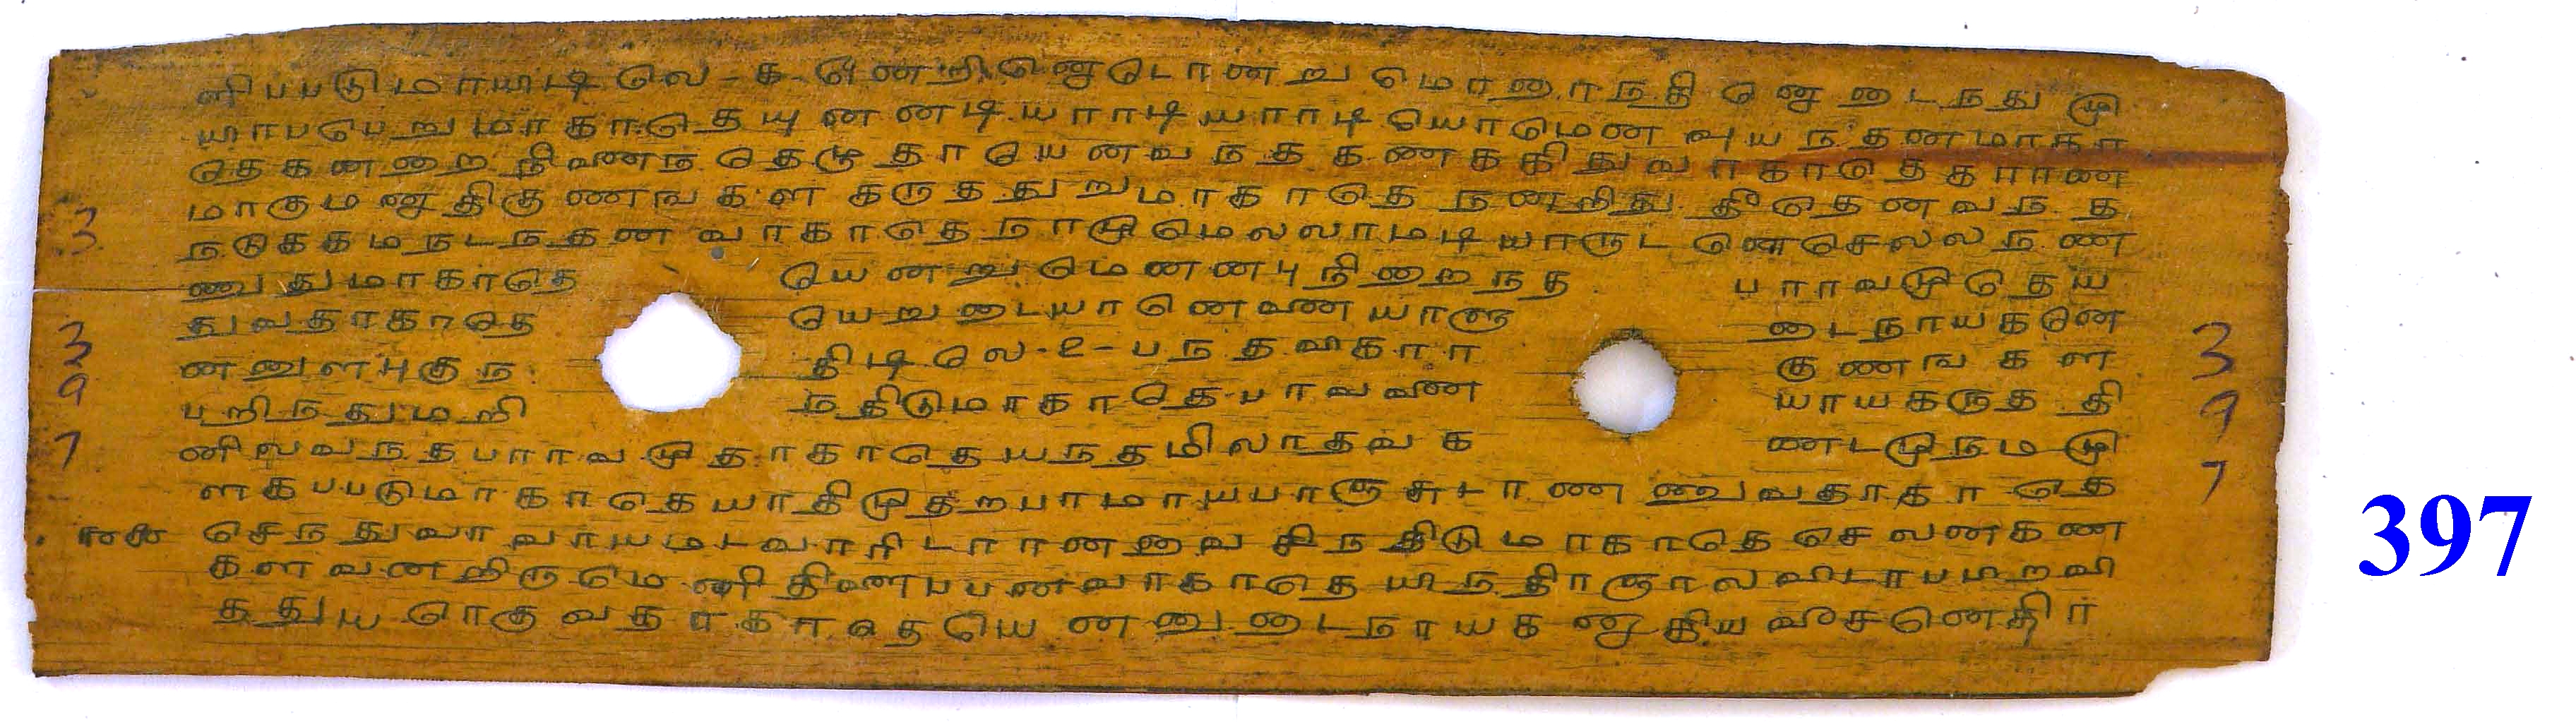 ளிபபடுமாயிடிலெ-க-ஒனறினெடொனறுமொரைநதினெடைநதுமு
யாபபெறுமாகாதெயுனனடியாாடியாாடியொமெனவுயநதனமாகா
தெகனறைநினைநதெழுதாயெனவநதகணககிதுவாகாதெகாரண
மாகுமனதிகுணஙகளகருததுறுமாகாதெநனறிதுதீதெனவநத
நடுககமநடநதனவாகாதெநாமுமெலலாமடியாருடனெசெலலநண
ணுதுமாகாதெ யெனறுமெனனபுநிறைநத பராவமுதெய
துவதாகாதெ யெறுடையானெனையாளு டைநாயகனெ
னனுளபுகுந திடிலெ-உ-பநதவிகார குணஙகள
பறிநதுமறி நதிடுமாகாதெபாவனை யாயகருததி
னிலவநதபராவமுதாகாதெயநதமிலாதவக ணடமுநமமு
ளகபபடுமாகாதெயாதிமுதறபரமாயபரஞசுடரணணுவதாகாதெ
செநதுவாவாயமடவாரிடரானவைசிநதிடுமாகாதெசெலனகண
களவனறிருமெனிதிளைபபனவாகாதெயிநதிரஞாலவிடாபபிறவி
ததுயரெகுவதாகாதெயெனனுடைநாயகனகியவீசனெதிா
397
397
397